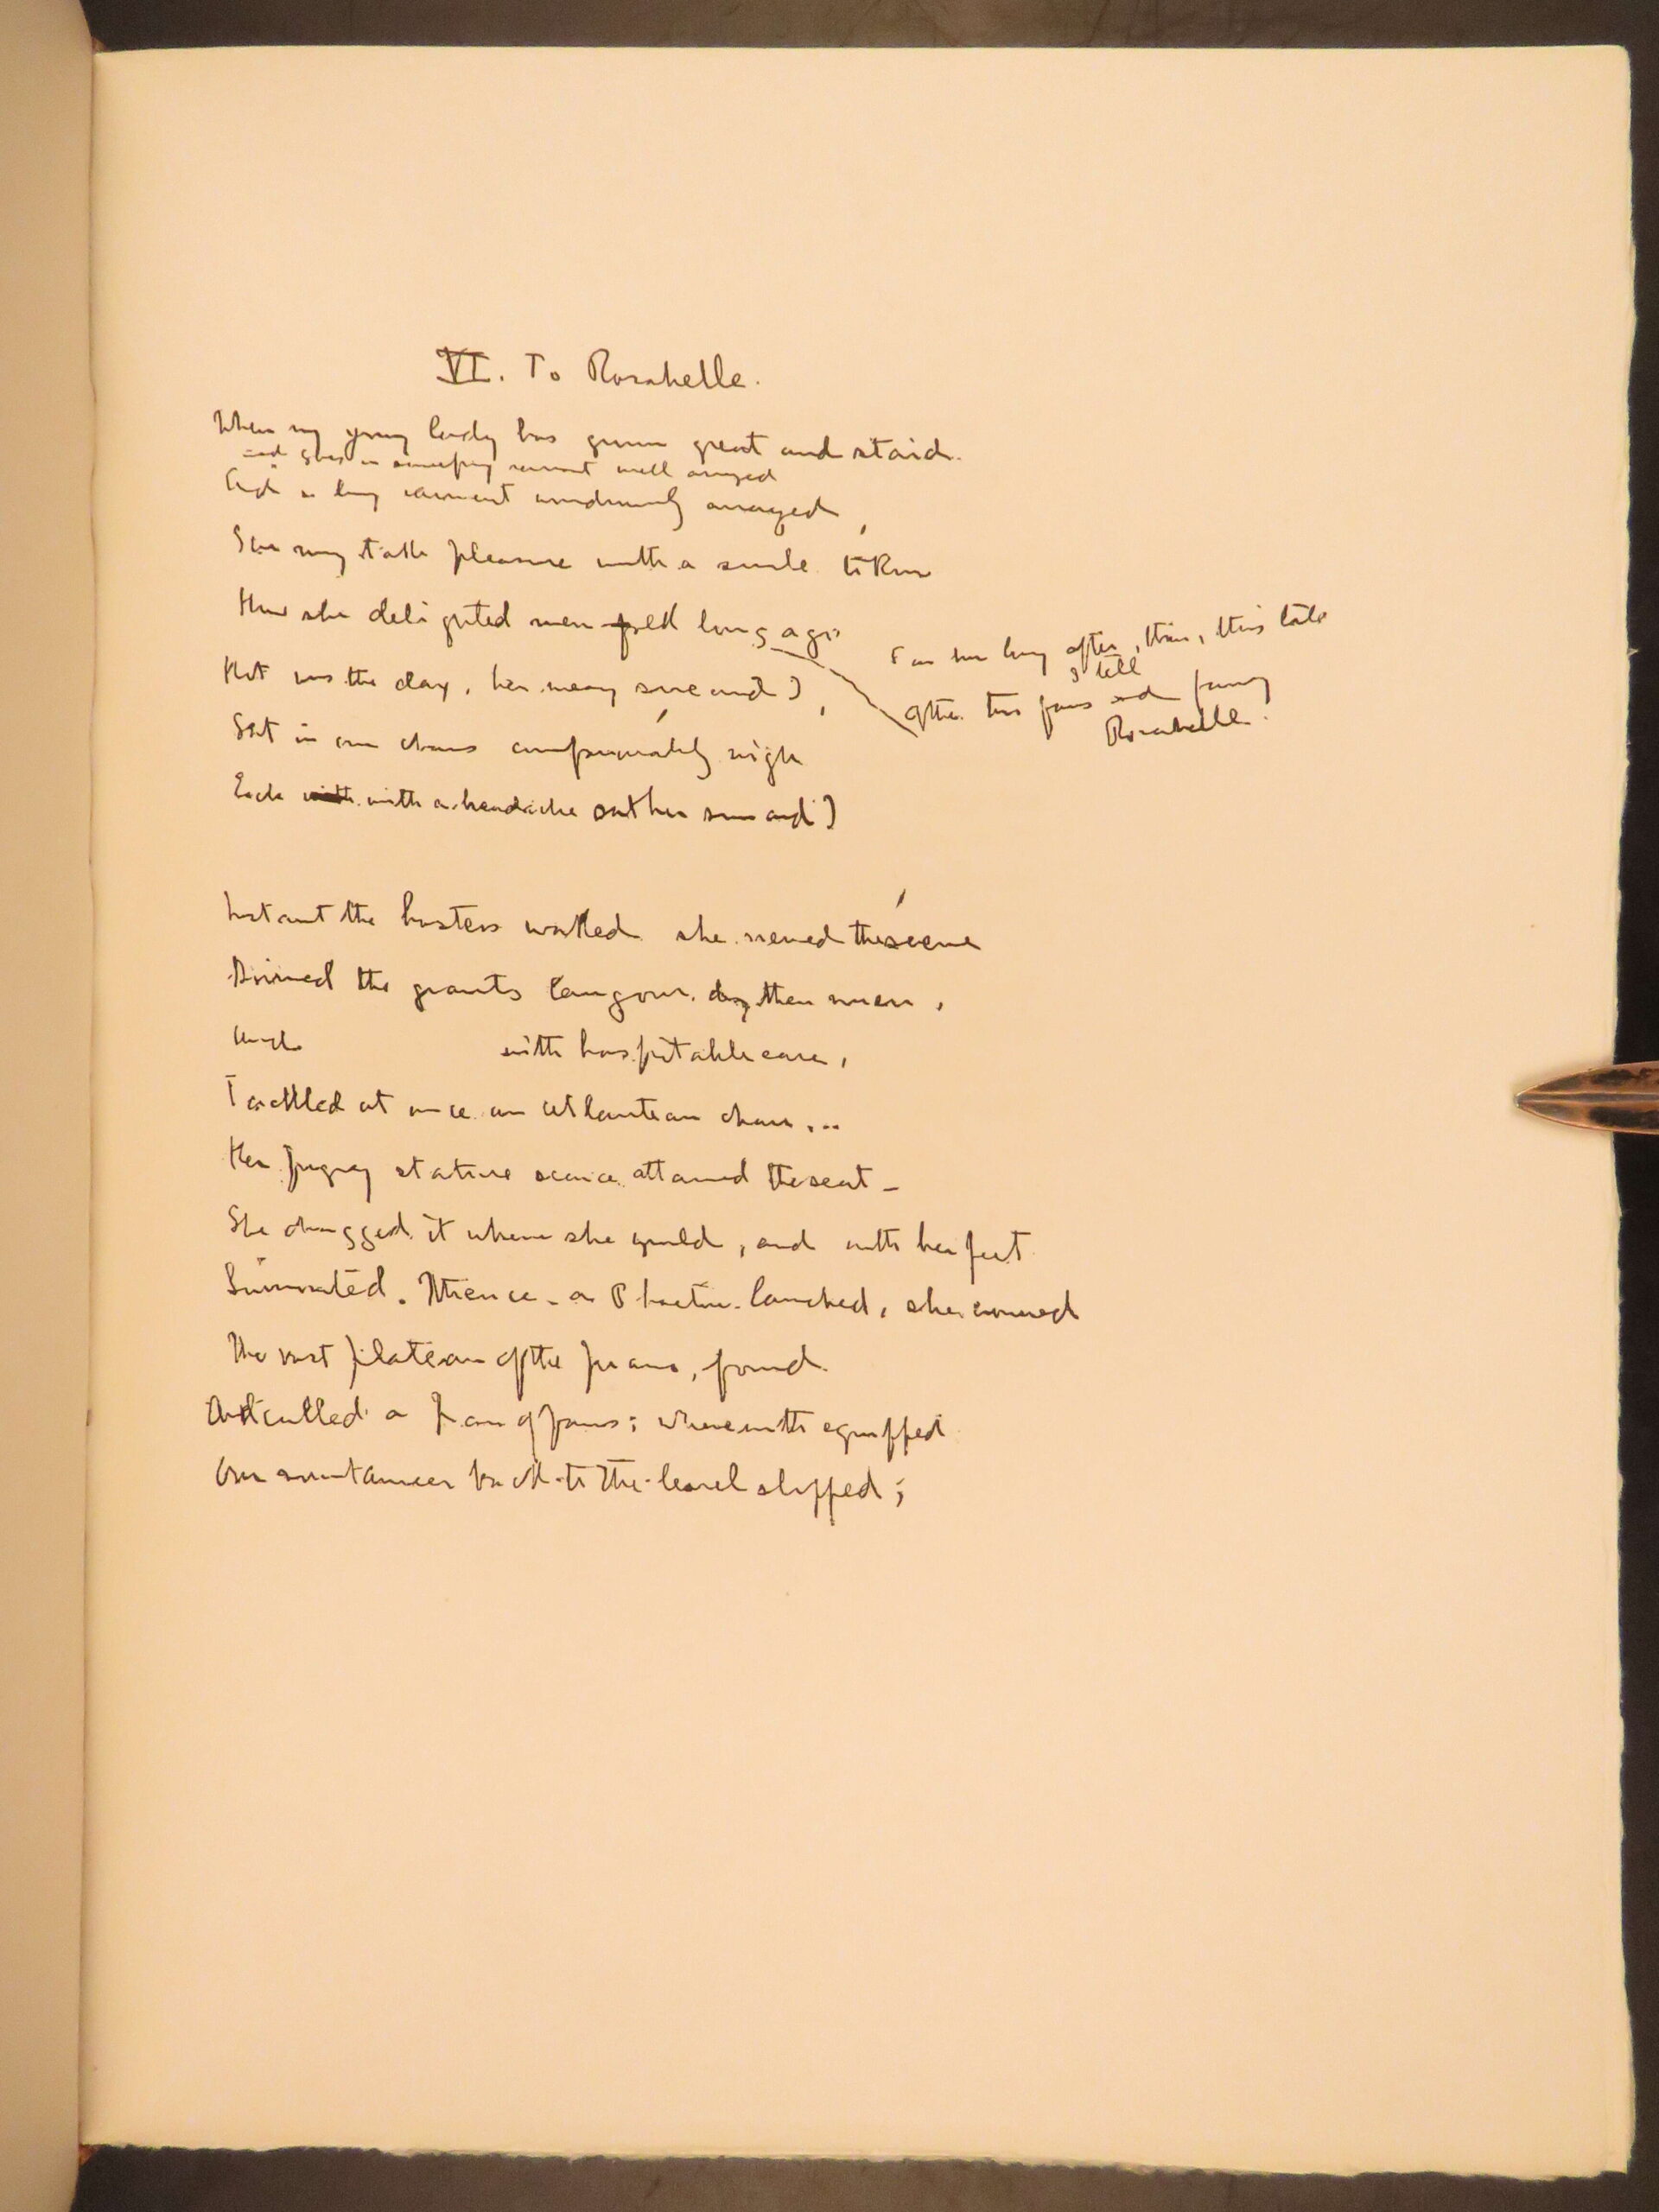 VI. To Rosabelle.
When my young lady has grown great and staid
And in long raiment wondrously arrayed,
She may take pleasure with a smile to know
How she delighted men folk long ago
For her long after, then, this tale
I tell
Of the two fans and fairy
Rosabelle.
Hot was the day, her weary sire and I
Sat in our chairs companionably nigh
Each with with a headache sat her sire and I
Instant the hostess waked she viewed the scene
Divined the giants langour by their mien,
And with hospitable care,
Tackled at once an Atlantean chair...
Her pigmy stature scarce attained the seat -
She dragged it where she would, and with her feet
Surmounted. Thence - a Phaeton launched, she crowned
The vast plateau of the piano, found
And culled a pair of fans; wherewith equipped
Our mountaineer back to the level slipped;